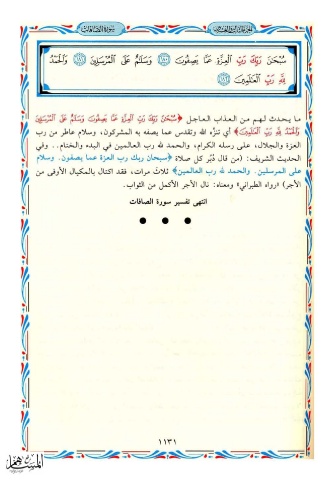 سورة الصافات
سُبْحَٰنَ رَبِّكَ رَبِّ الْعِزَّةِ عَمَّا يَصِفُونَ ﴿١٨٠﴾ وَسَلَٰمٌ عَلَى الْمُرْسَلِينَ ﴿١٨١﴾ وَالْحَمْدُ
لِلَّهِ رَبِّ الْعَٰلَمِينَ ﴿١٨٢﴾
ما يحدث لهم من العذاب العاجل ﴿سُبْحَٰنَ رَبِّكَ رَبِّ الْعِزَّةِ عَمَّا يَصِفُونَ وَسَلَٰمٌ عَلَى الْمُرْسَلِينَ
وَالْحَمْدُ لِلَّهِ رَبِّ الْعَٰلَمِينَ﴾ أي تنزَّه الله وتقدس عما يصفه به المشركون، وسلام عاطر من رب
العزة والجلال، على رسله الكرام، والحمد لله رب العالمين في البدء والختام.. وفي
الحديث الشريف: (من قال دُبُر كل صلاة ﴿سبحان ربك رب العزة عما يصفون. وسلام
على المرسلين. والحمد لله رب العالمين﴾ ثلاث مرات، فقد اكتال بالمكيال الأوفى من
الأجر) «رواه الطبراني» ومعناه: نال الأجر الأكمل من الثواب.
انتهى تفسير سورة الصافات
١١٣١